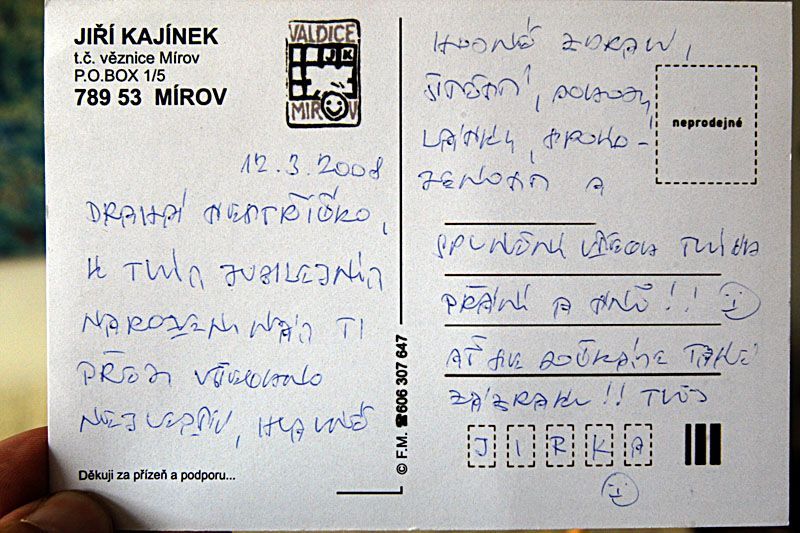 JIŘÍ KAJÍNEK
t.č. věznice Mírov
P.O.BOX 1/5
789 53 MÍROV
VALDICE
J K
MIROV
12.3.2008
DRAHÁ SESTŘIČKO,
K TVÝM JUBILEJNÍM
NAROZENINÁM TI
PŘEJI VŠECHNO
NEJLEPŠÍ, HLAVNĚ
Děkuji za přízeň a podporu...
© F.M. ☎606 307 647
HODNĚ ZDRAVÍ,
ŠTĚSTÍ, POHODY,
LÁSKY, SPOKO-
JENOSTI A
neprodejné
SPLNĚNÍ VŠECH TVÝCH
PŘÁNÍ A SNŮ!!
AŤ SE DOČKÁME TAKÉ
ZÁZRAKU!! TVŮJ
JIRKA